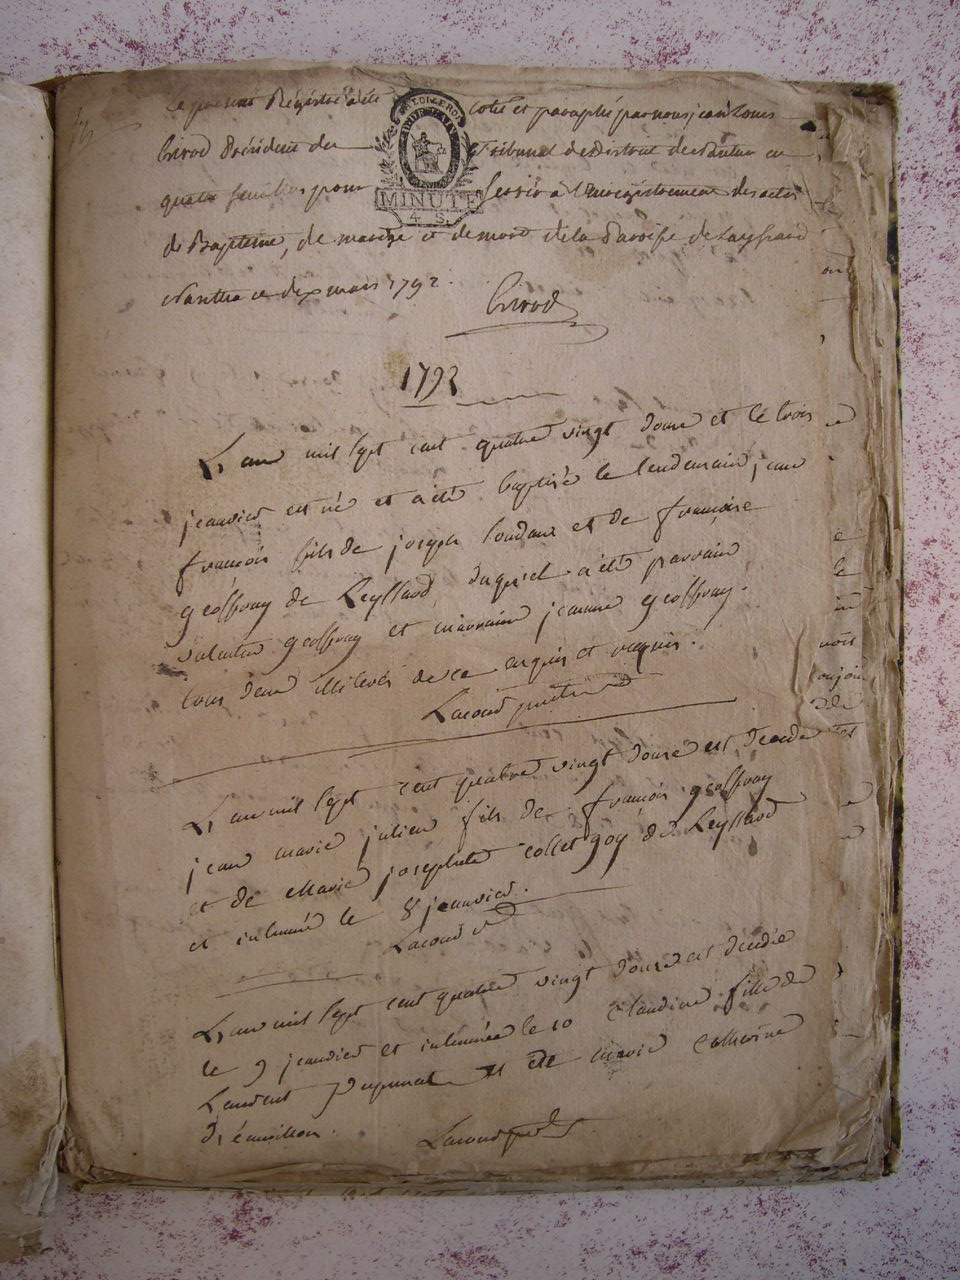 Le present Régistre a été coté et paraphé par nous jean Louis
Girod Président du Tribunal de District de Nantua en
quatre feuilles pour servir a l'enregistrement des actes
de Baptême, de mariage et de mort de la Paroisse de Leyssard
Nantua ce dix mars 1792.
Girod
MINUTE
4 S.
1792
L'an mil sept cent quatre vingt douze et le trois
jeanvier est né et a été baptisé le lendemain jean
françois fils de joseph et de françoise
geoffray de Leyssard duquel a été parrain
valentin geoffray et marraine jeanne geoffray.
tous deux illiterés de ce enquis et requis.
Lacoud
L'an mil sept cent quatre vingt douze est décédé
jean marie julien fils de françois geoffray
et de Marie josephte collet goy de Leyssard
et inhumé le 8 jeanvier.
Lacoud
L'an mil sept cent quatre vingt douze est décédée
le 9 jeanvier et inhumée le 10 Claudine fille de
Laurent et de marie catherine
Lacoud